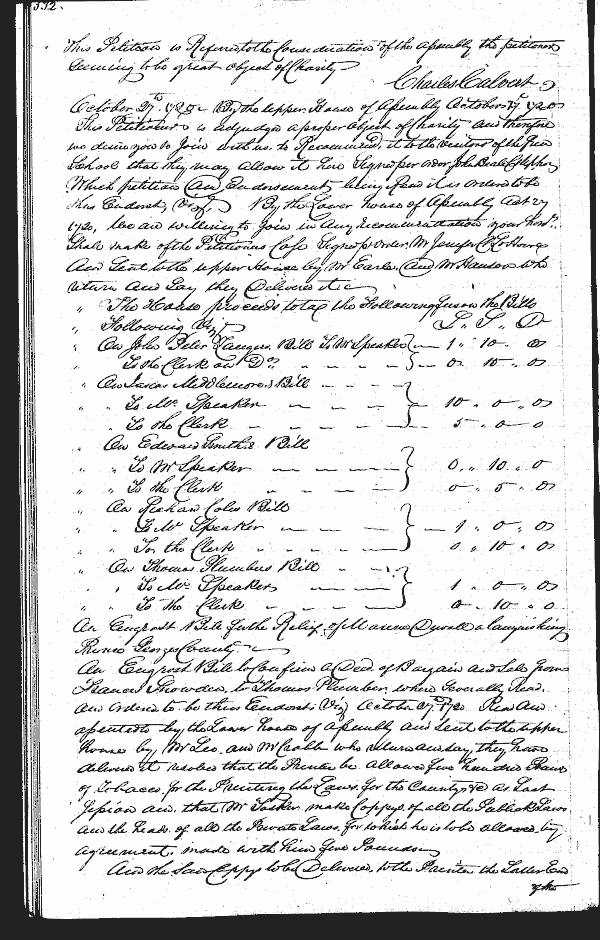 332.
This Petition is Referred to the Consideration of the Assembly the petitioner
seeming to be great object of Charity
Charles Calvert
October 27th 1720 By the upper House of Assembly October 27 1720
This Petitioner is adjudged a proper Object of Charity and therefore
we desire you to Join with us to Recommend it to the visitors of the free
School that they may allow it him Signed per order John Beale
Which petition And Endorsement being Read it is ordered to be
thus Endorsed, Vizt. By the Lower house of Assembly Octr 27
1720, we are willing to Join in Any Recommendation your hons.
Shall make of the Petitioners Case Signed p Order, M Jenifer Cl Lo House
And Sent to the upper House by Mr Earle And Mr Hanson who
return And Say they Delivered it
" The House proceeds to tax the Following fees on the Bills
" Following Vizt L. S. D
" On John Peter Bill To Mr Speaker } — 1 " 10 " 0
" To the Clerk on Do. } — 0 " 10 " 0
" On Middlemores Bill
" " To Mr Speaker — — — } 10 " 0 " 0
" " To the Clerk — — — } 5 " 0 " 0
" On Edward Smiths Bill
" " To Mr Speaker — — — } 0 " 10 " 0
" " To the Clerk — — — } 0 " 5 " 0
" On Richard Coles Bill
" " To Mr Speaker — — — } 1 " 0 " 0
" " To the Clerk — — — } 0 " 10 " 0
" On Thomas Plumbers Bill
" " To Mr Speaker — — — } 1 " 0 " 0
" " To the Clerk — — — } 0 " 10 " 0
An Engrost Bill for the Relief of Mareen Duvall a languishing
Prince Georges County
An Engrost Bill to Confirm a Deed of Bargain and Sale from
Francis Snowden to Thomas Plumber where Severally Read
And ordered to be thus Endorsed Vizt October 27th 1720 Read And
assented to by the Lower house of Assembly and Sent to the upper
House by Mr and Mr who return and say they have
delivered it resolved that the Printer be Allowed five hundred Pounds
of Tobacco for the Printing the Laws for the County &c as Last
Session and that Mr Tasker make Coppys of all the Publick Laws
and the heads of all the Private Laws for which he is to be allowed by
agreement made with him five Pounds
And the Said Coppy to be Delivered to the Printer the Latter End
of the